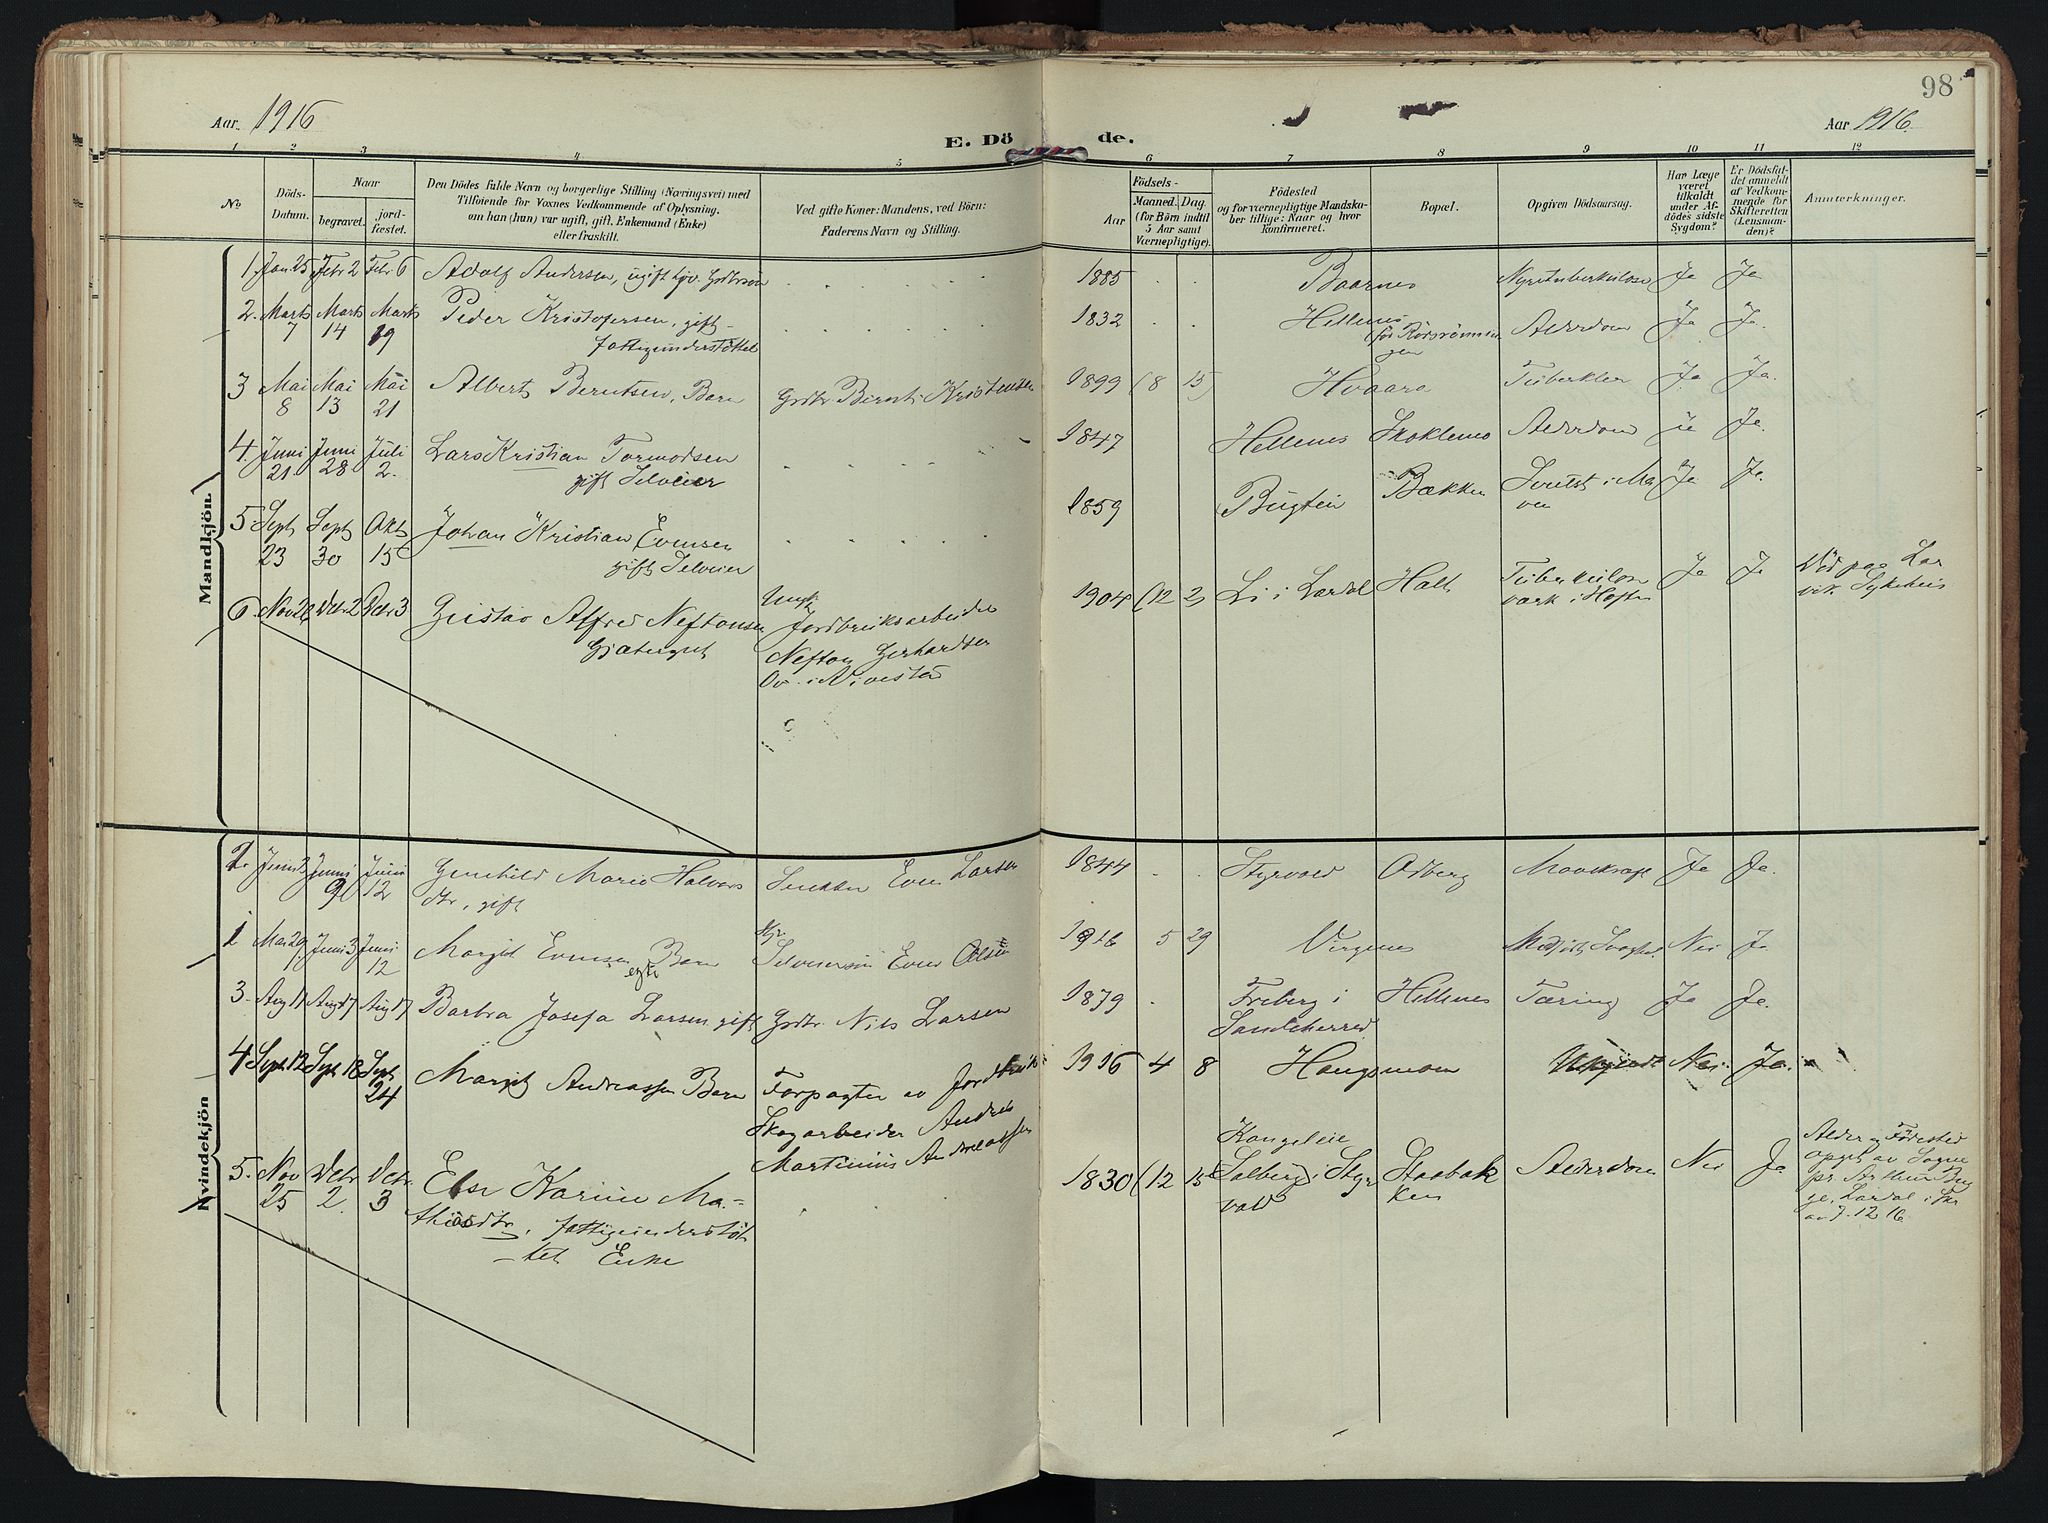 98
Aar. 1916
E. Dö de.
Aar 1916.
1 2 3 4 5 6 7 8 9 10 11 12
No
Döds-Datum.
Naar
begravet.
jord-fæstet.
Den Dödes fulde Navn og borgerlige Stilling (Næringsvei) med
Tilföiende for Voxnes Vedkommende af Oplysning,
om han (hun) var ugift, gift, Enkemand (Enke)
eller fraskilt.
Ved gifte Koner: Mandens, ved Börn:
Faderens Navn og Stilling.
Födsels-
Aar
Maaned. Dag.
(for Börn indtil
5 Aar samt
Værnepligtige).
Födested
og for værnepligtige Mandska-
ber tillige: Naar og hvor
konfirmeret.
Bopæl.
Opgiven Dödsaarsag.
Har Læge
været
tilkaldt
under Af-
dödes sidste
Sygdom?
Er Dödsfal-
det anmeldt
af Vedkom-
mende for
Skifteretten
(Lensman-
den)?
Anmerkninger.
Mandkjön.
1. Jan. 25 Febr 2 Febr. 6 Adolf Andersen, ugift Grdbrsön 1885 Baarnes Nyretuberkulose Ja Ja
2. Marts 7 Marts 14 Marts 19 Peder Kristofersen, gift
fattigunderstöttet 1832 Hellenes Alderdom Ja Ja.
3 Mai 8 Mai 13 Mai 21 Albert Berntsen, Barn Grdbr Bernt Kristensen 1899 (8 15) Hvaara Tuberkler Ja Ja.
4. Juni 21. Juni 28 Juli 2. Lars Kristian Tormodsen
gift Selveier 1847 Hellenes Skoklemo Alderdom Ja Ja.
5 Sept 23 Sept 30 Okt 15 Johan Kristian Evensen
gift Selveier 1859 Bugten Bækken Svulst i Ma
ven Ja Ja.
6. Nov 26 Debr 2 Debr 3 Gustav Alfred Neftonsen
Gjætergut
Jordbruksarbeider
Nefton Gerhardsen
1904 (12 2) Li i Lardal Holt Tuberkulose
værk i Hoften Ja Ja Död paa Lar
vik Sykehus
Kvindekjön
2. Juni 2 Juni 9 Juni 12 Gunhild Marie Halvors
dtr, gift Snekker Even Larsen 1844 Styrvold Odberg Ja Ja.
1 Mai 29. Juni 3 Juni 12 Margit Evensen Barn
egte
Selveiersön Even Olsen 1916 5 29 Virgenes Medfödt Svaghet Nei Ja
3. Aug 11 Aug 17 Aug 17 Barbra Josefa Larsen gift Grdbr. Nils Larsen 1879 Freberg i
Sandeherred Hellenes Tæring Ja Ja.
4 Sept 12 Sept 18 Sept 24 Margit Andreassen Barn Forpagter av Jordbruk
Skogarbeider Andreas
Martinius Andreassen 1916 4 8 Haugsmoen Ukjendt Nei Ja.
5. Nov 25 Debr 2. Debr. 3 Else Karine Ma-
thiasdtr, fattigunderstöt
tet Enke 1830 (12 15 Kongeleie
Solberg i Styr
vold Staabak
ken Alderdom Nei Ja Alder og Födested
opgit av Sogne
pr. Arthur Ber
ge, Lardal i Skr
av 7.12 16